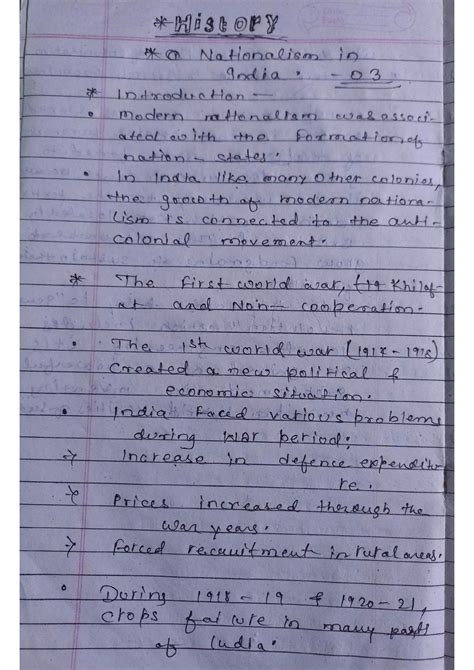 * HISTORY
* ① Nationalism in
India. - 03
* Introduction -
• Modern nationalism was associ-
ated with the formation of
nation - states.
• In India like many other colonies,
the growth of modern nationa-
lism is connected to the anti-
colonial movement.
* The first world war, Khilaf-
at and Non - cooperation.
• The 1st world war (1914 - 1918)
created a new political &
economic situation.
• India faced various problems
during war period:
→ Increase in defence expenditu-
re.
→ Prices increased through the
war years.
→ Forced recuuitment in rural areas.
• During 1918 - 19 & 1920 - 21,
crops failure in many part
of India.